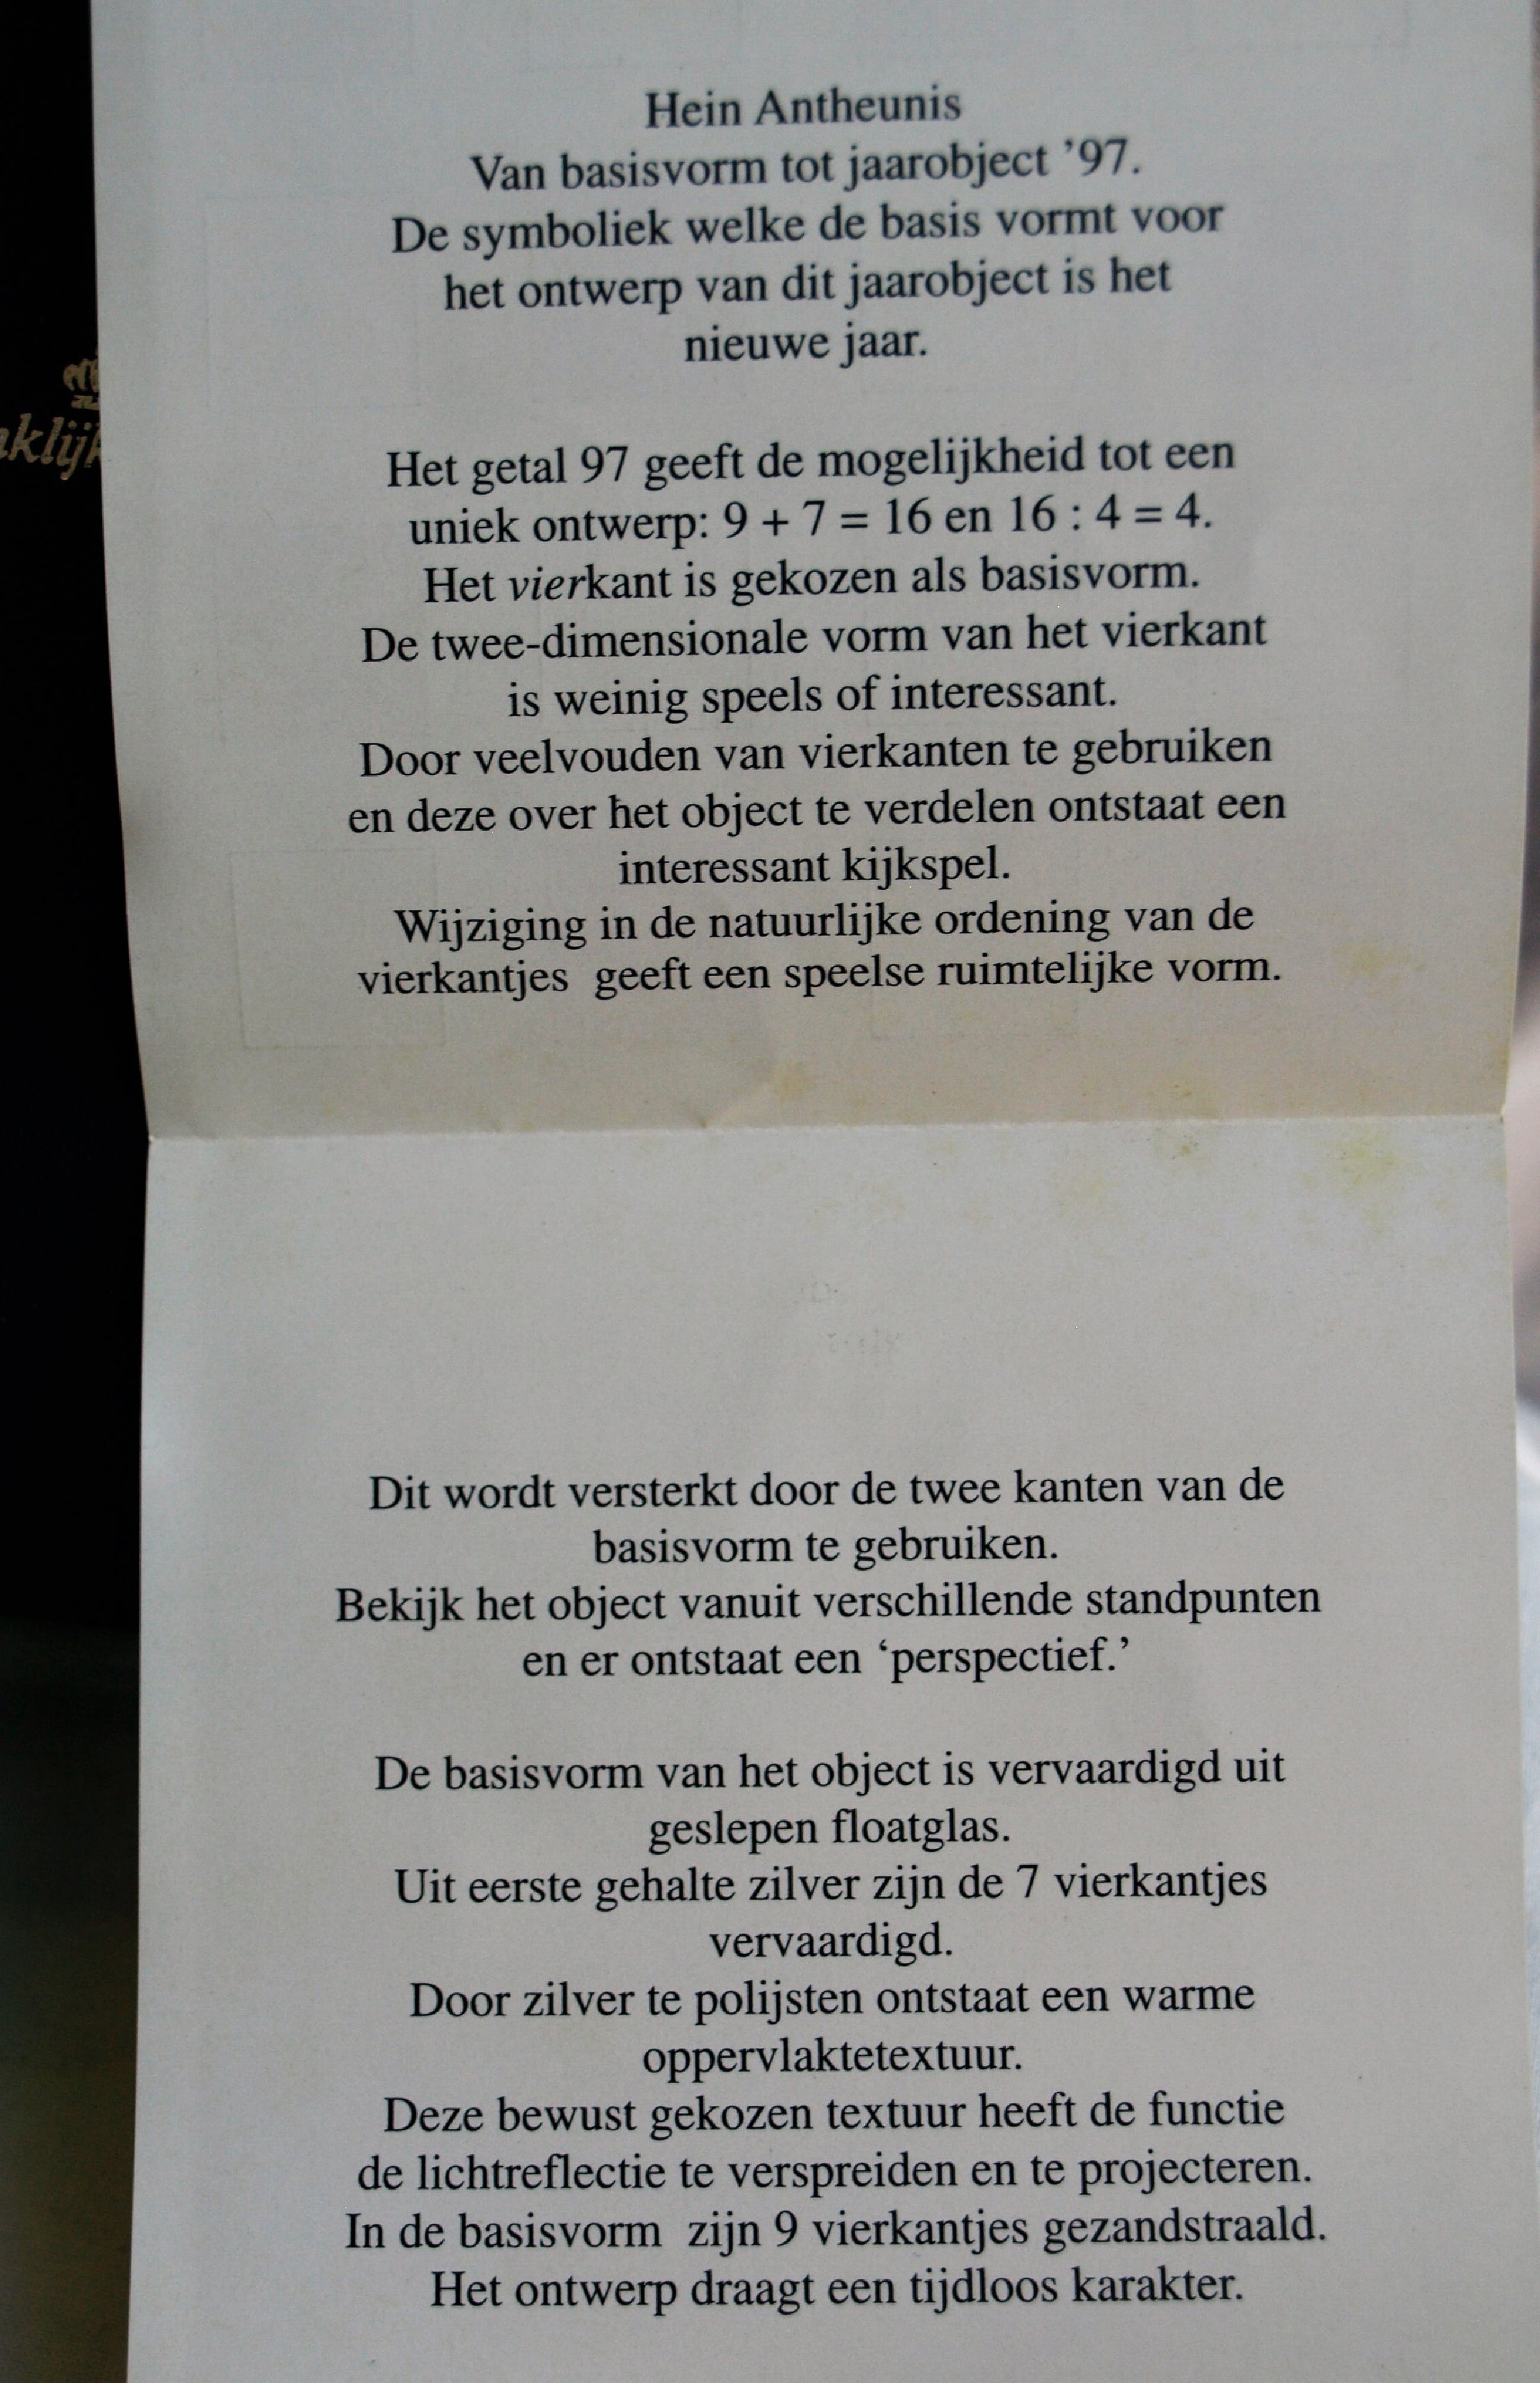 Hein Antheunis
Van basisvorm tot jaarobject ’97.
De symboliek welke de basis vormt voor
het ontwerp van dit jaarobject is het
nieuwe jaar.
Het getal 97 geeft de mogelijkheid tot een
uniek ontwerp: 9 + 7 = 16 en 16 : 4 = 4.
Het vierkant is gekozen als basisvorm.
De twee-dimensionale vorm van het vierkant
is weinig speels of interessant.
Door veelvouden van vierkanten te gebruiken
en deze over het object te verdelen ontstaat een
interessant kijkspel.
Wijziging in de natuurlijke ordening van de
vierkantjes geeft een speelse ruimtelijke vorm.
Dit wordt versterkt door de twee kanten van de
basisvorm te gebruiken.
Bekijk het object vanuit verschillende standpunten
en er ontstaat een ‘perspectief.’
De basisvorm van het object is vervaardigd uit
geslepen floatglas.
Uit eerste gehalte zilver zijn de 7 vierkantjes
vervaardigd.
Door zilver te polijsten ontstaat een warme
oppervlaktetextuur.
Deze bewust gekozen textuur heeft de functie
de lichtreflectie te verspreiden en te projecteren.
In de basisvorm zijn 9 vierkantjes gezandstraald.
Het ontwerp draagt een tijdloos karakter.